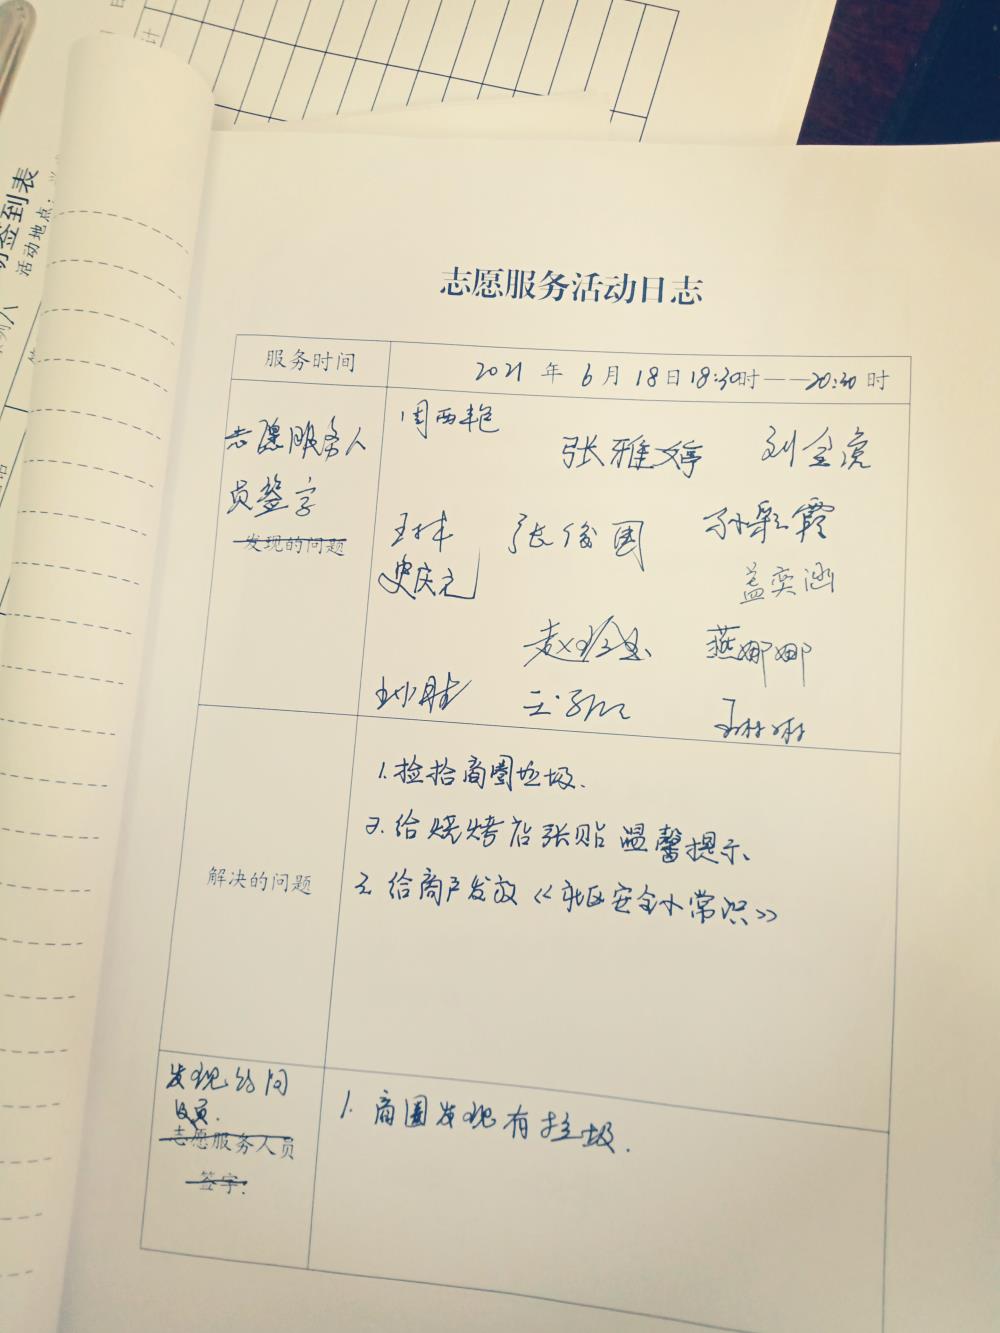 计
签到表
活动地点:
志愿服务活动日志
服务时间
2021 年 6 月 18 日 18:30时——20:30 时
志愿服务人
员签字
发现的问题
周西艳
张雅婷
刘金虎
张俊国
孙彩霞
史庆元
盖奕涵
燕娜娜
王琳琳
解决的问题
1.捡拾商圈垃圾.
2.给烧烤店张贴温馨提示、
3.给商户发放《社区安全小常识》
发现的问
志愿服务人员
签字:
1.商圈发现有垃圾.